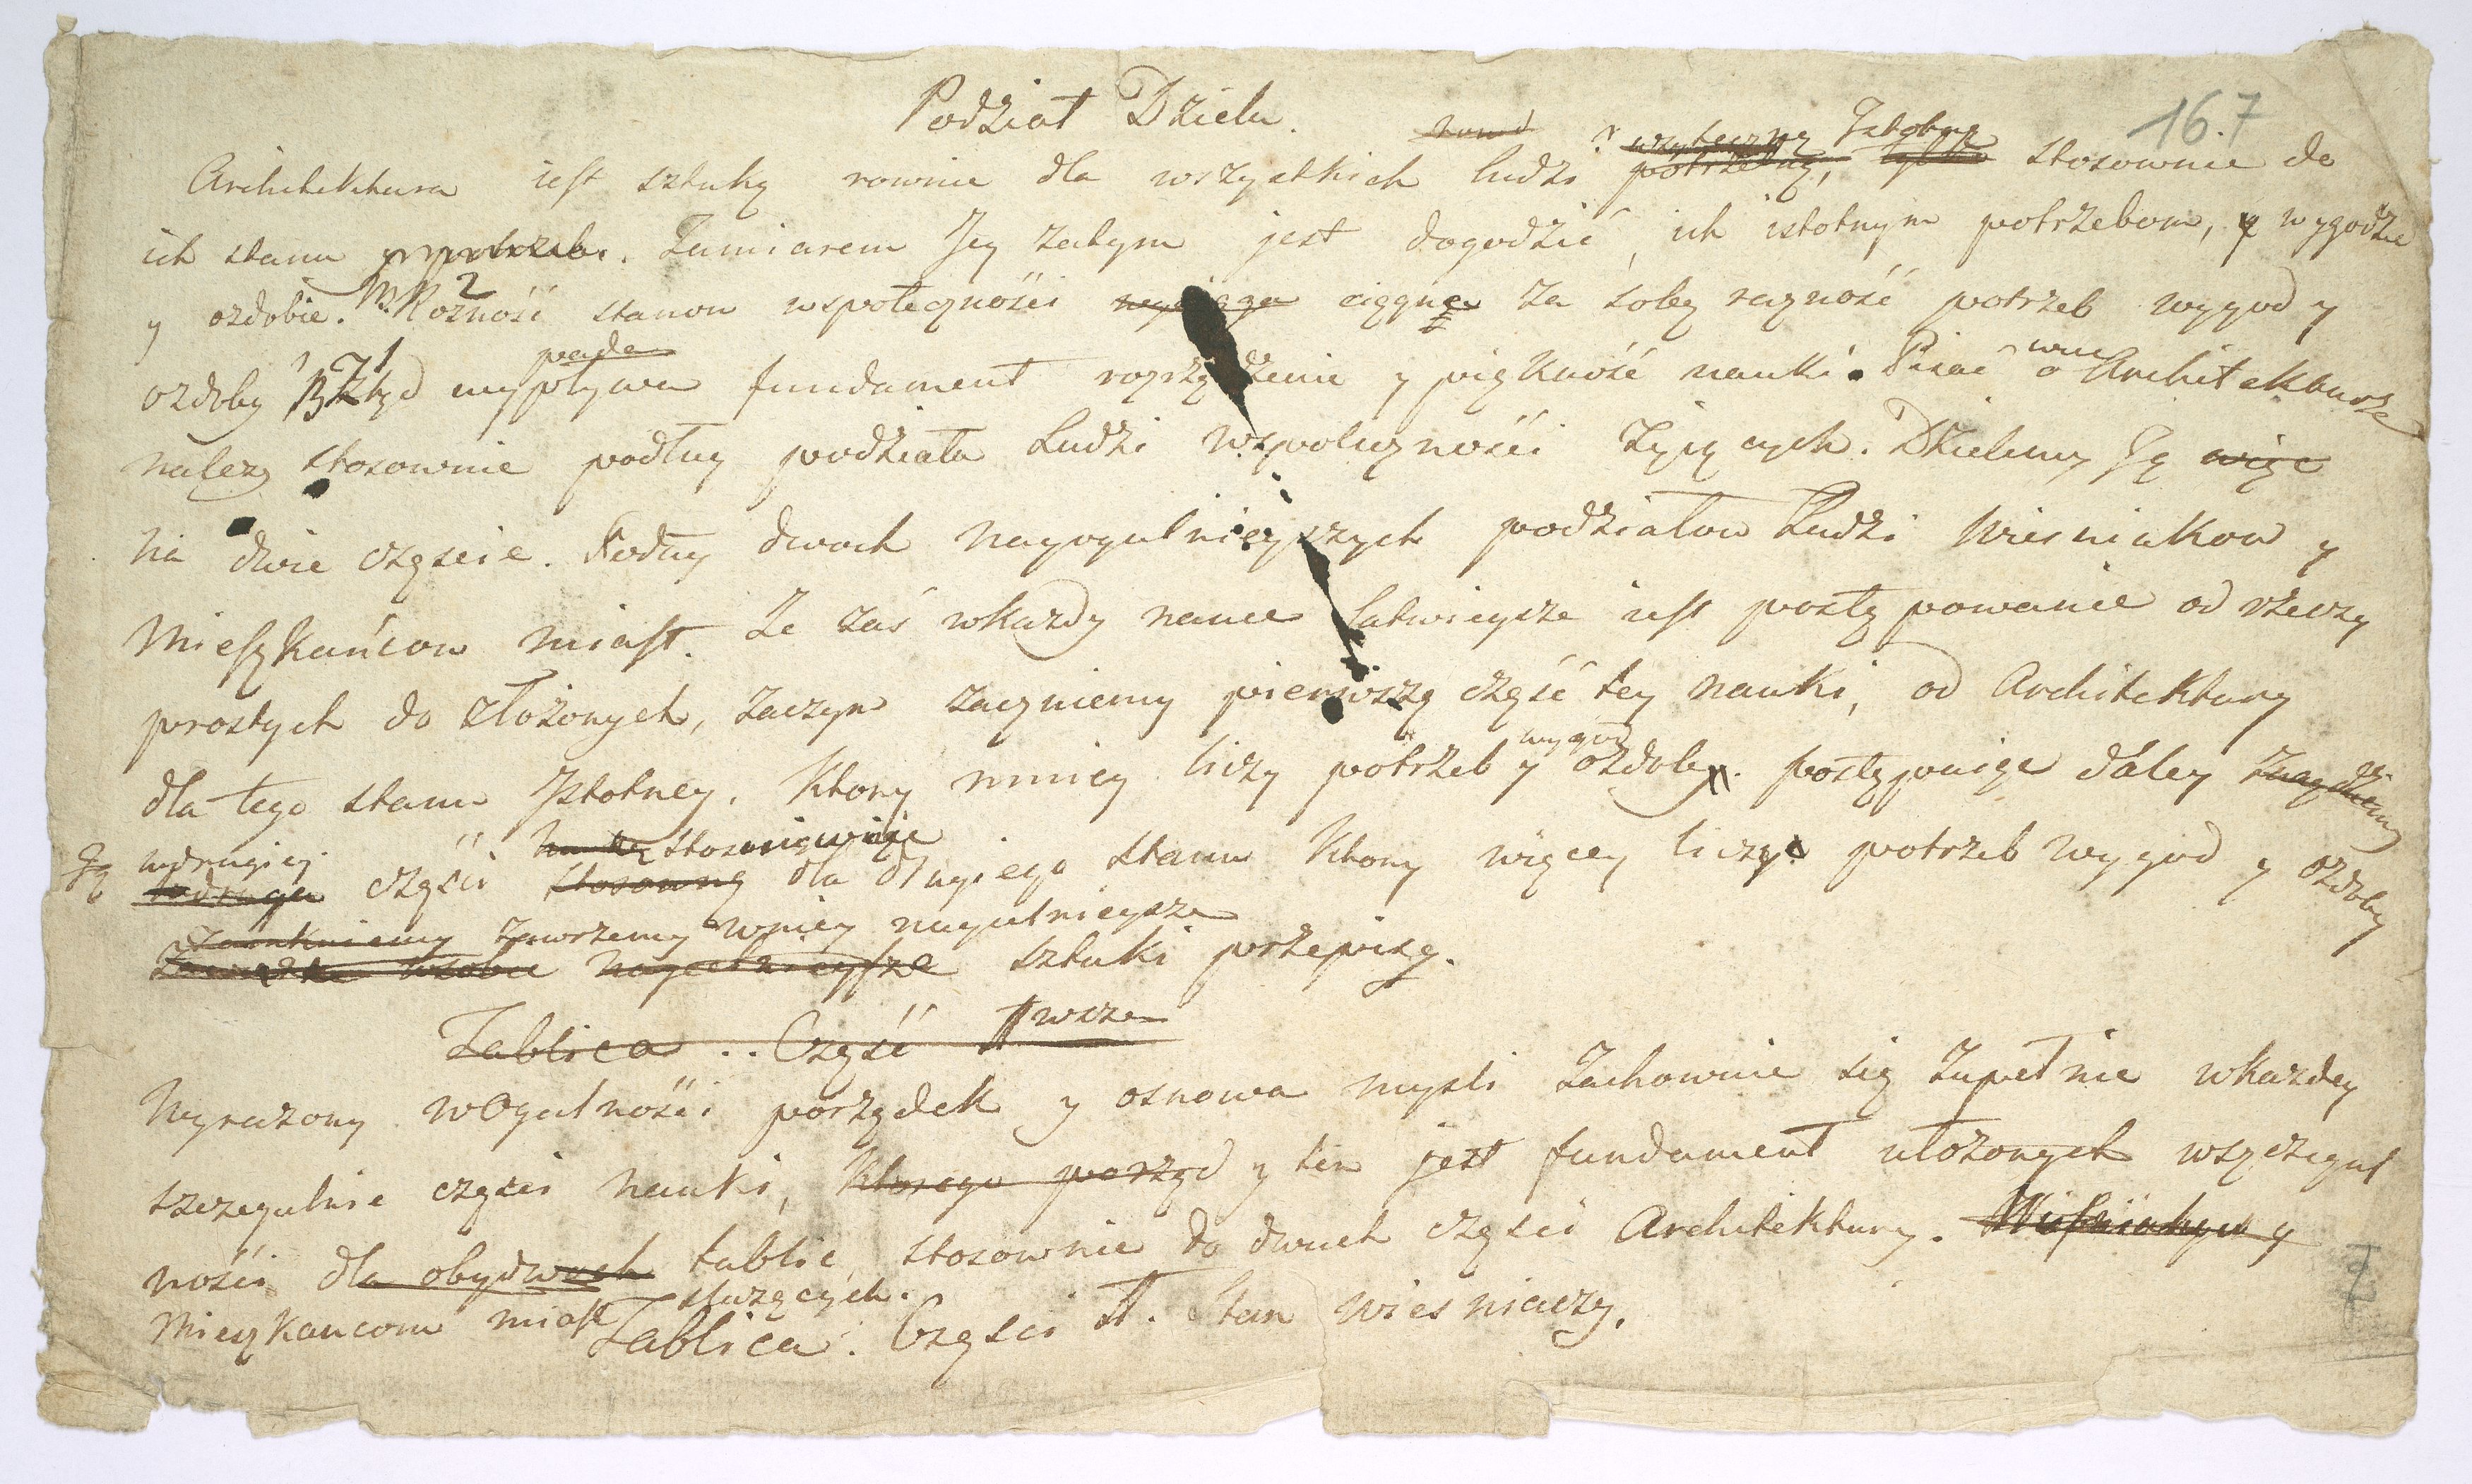 Podział Dzieła.
167
Architektura iest sztuką rownie dla wszystkich ludzi potrzebną, stosownie do
ich stanu y potrzeb. Zamiarem Jey zatym jest dogodzić ich istotnym potrzebom, y wygodzie
y ozdobie. Rożność stanow społecznośći ciągnie za sobą rożność potrzeb wygod y
ozdoby Ztąd wypływa fundament rozrządzenie y piękność nauki. Pisać o Architekturze
należy stosownie podług podziału Ludzi wspołecznośći żyiących. Dzielemy Ją więc
na dwie częscie. Podług dwoch nayogulnieyszych podziałow Ludzi Wiesniakow y
Mieszkańcow miast. Ze zaś wkażdy nauce łatwieysze iest postępowanie od rzeczy
prostych do złożonych, zaczym zaczniemy pierwszą część tey nauki, od Architektury
wygod
dla tego stanu Istotney, ktory mniey liczy potrzeb y ozdoby. postępuiąc daley
Ją wdrugiey stosownie
wdruga częśći stosowną dla drugiego stanu ktory więcey liczy potrzeb wygod y ozdoby
zamkniemy zawrzemy wniey nayulnieysze
sztuki przepisy.
Tablica .. Część wsza
Wyrażony wOgulnośći porządek y osnowa mysli zachownie się zupełnie wkażdey
szczegulnie części nauki, ktorego porząd y ten jest fundament ułożonych wszczegul
nośći dla obydwuch tablic, stosownie do dwuch części Architektury.
Mieszkancom miast służących.
Tablica: Części Stan wiesniaczy.